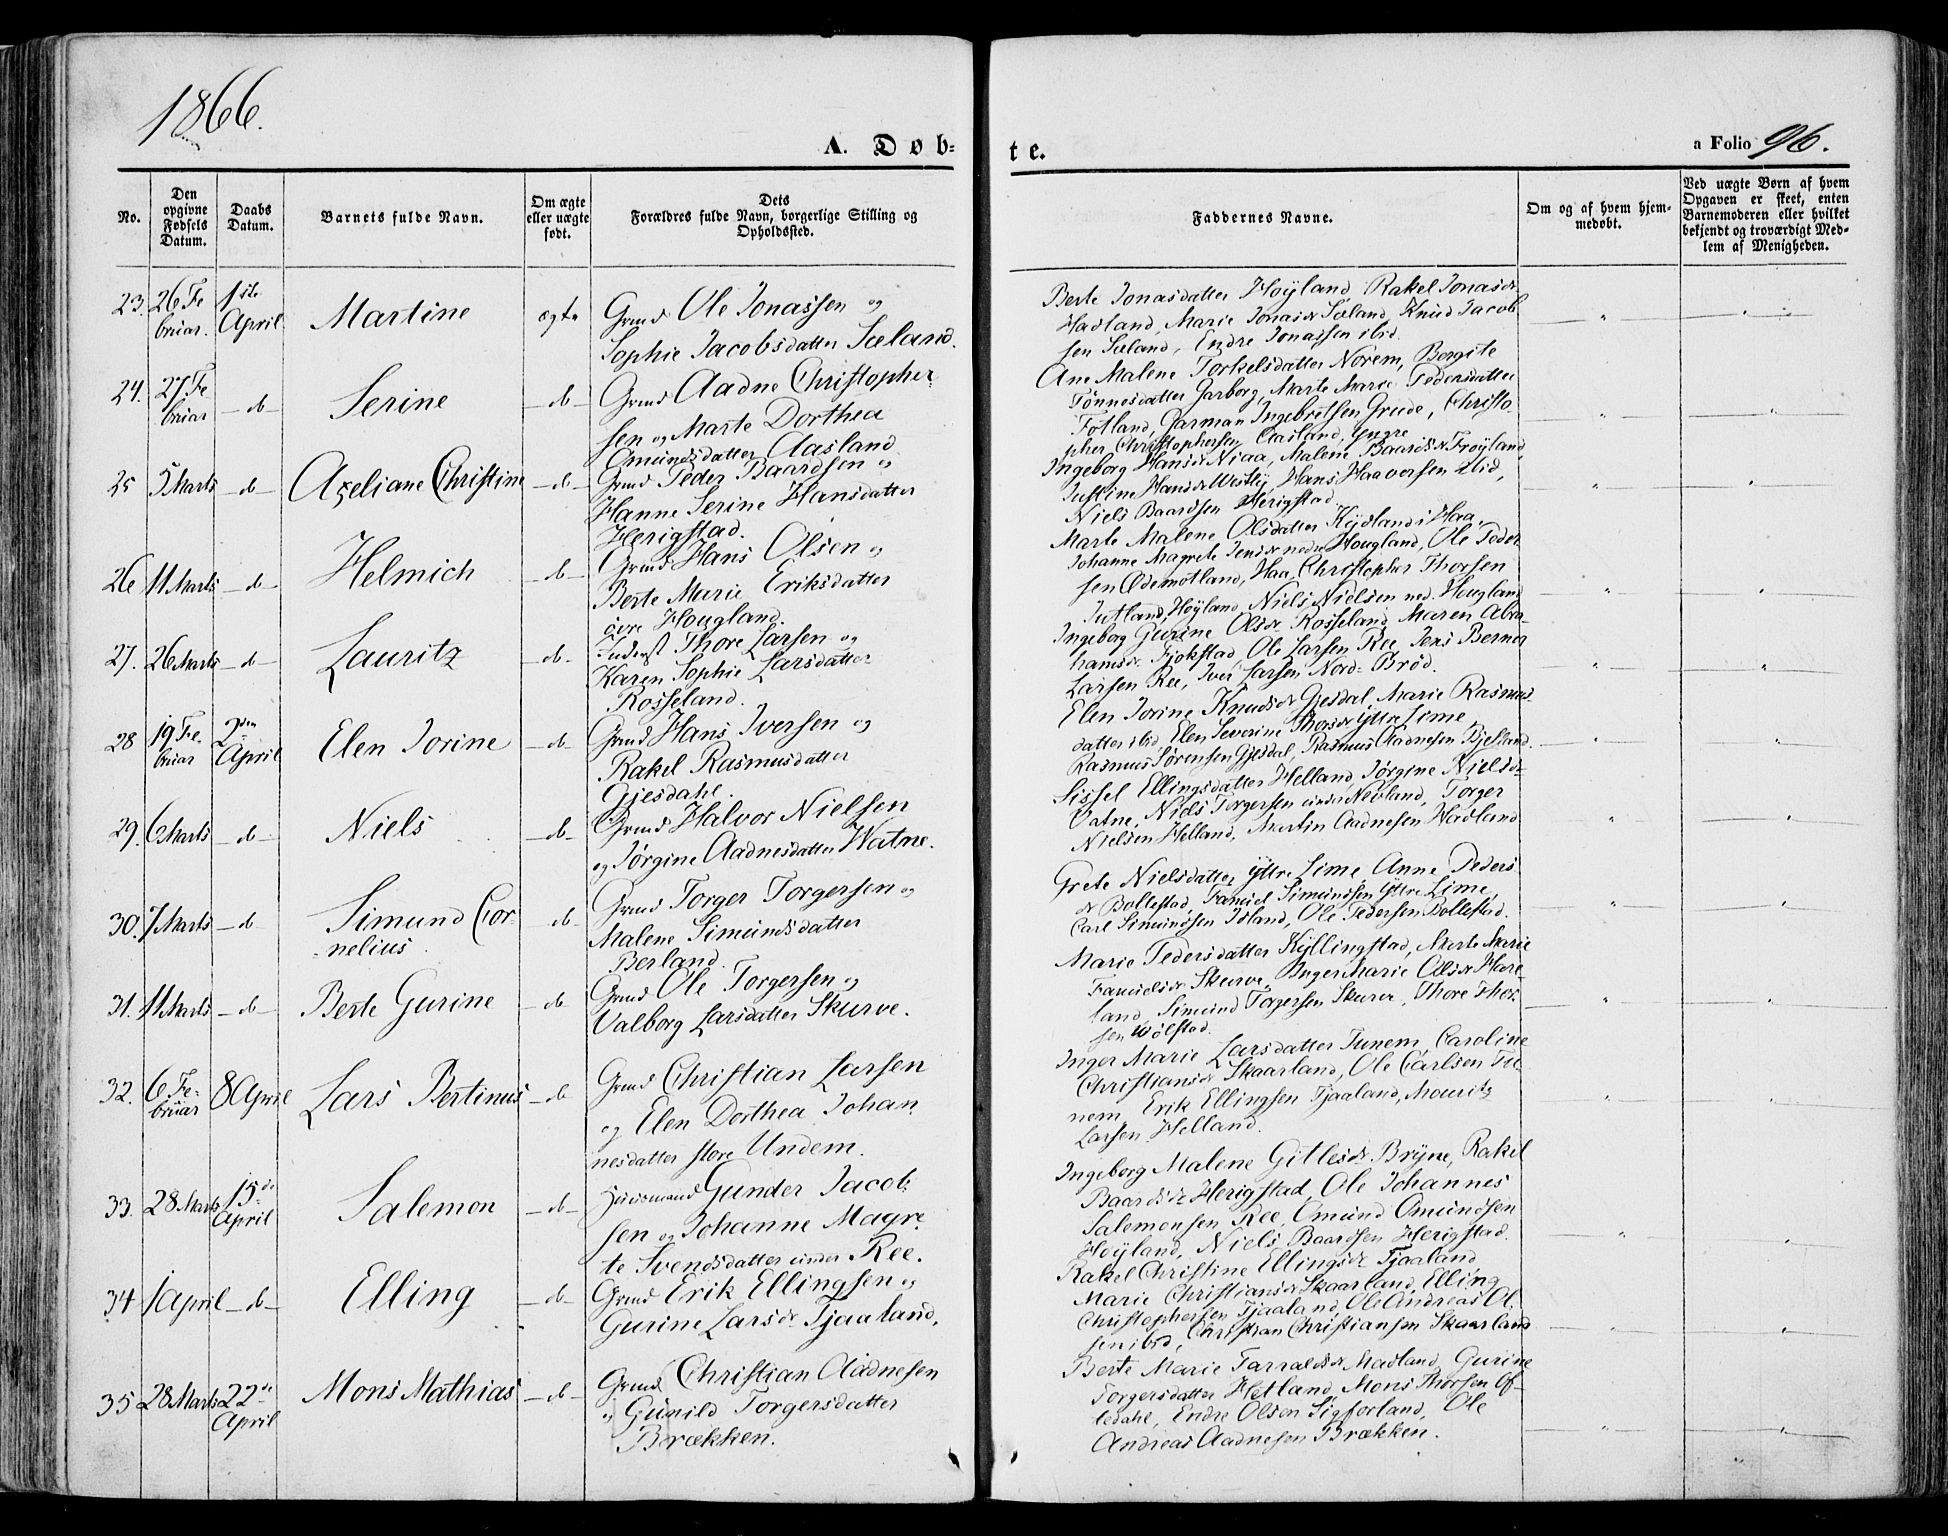 1866.
A. Døb=
te.
a Folio 96.
No.
Den opgivne Fødsels Datum.
Daabs Datum.
Barnets fulde Navn.
Om ægte eller uægte født.
Dets Forældres fulde Navn, borgerlige Stilling og Opholdssted.
Faddernes Navne.
Om og af hvem hjemmedøbt.
Ved uægte Børn af hvem Opgaven er skeet, enten Barnemoderen eller hvilket bekjendt og troværdigt Medlem af Menigheden.
23. 26 Februar. 1ste April Martine ægte Grmd Ole Jonassen og
Sophie Jacobsdatter Sæland.
Berte Jonasdatter Høÿland Rakel Jonasdr
Hadland, Marie Jonasdr Sæland, Knud Jacob
sen Sæland, Endre Jonassen ibid.
24. 27 Februar - d - Serine - d - Grmd Aadne Christopher
sen og Marte Dorthea
Omundsdatter Aasland
Ane Malene Torkelsdatter Norem, Borgite
Tønnesdatter Garborg, Marte Marie Pedersdatter
Fotland, Garman Ingebretsen Grude, Christo
pher Christophersen Aasland, yngre
25 5 Marts - d - Axeliane Christine - d - Grmd Peder Baardsen og
Hanne Serine Hansdatter
Herigstad.
Ingeborg Hansdr Niaa, Malene Baardsdr Frøyland,
Justine Hansdr Westly, Hans Haaversen Lid,
Niels Baardsen Herigstad
26 11 Marts - d - Helmich - d - Grmd Hans Olsen og
Berte Marie Eriksdatter
övre Hougland.
Marte Malene Olsdatter Kydland i Haa,
Johanne Magrete Jensdr nedre Hougland, Ole Peder
sen Ødemotland, Haa, Christopher Thorsen
Jutland, Høyland, Niels Nielsen ned. Hougland
27. 26 Marts - d - Lauritz - d - Inderst Thore Larsen og
Karen Sophie Larsdatter
Rosseland.
Ingeborg Gurine Olsdr Rosseland, Maren Abra
hamsdr Fjokstad, Ole Larsen Ree, Jens Berner
Larsen Ree, Iver Larsen Nord-Brød.
28 19 Februar 2den April Elen Jorine - d - Grmd Hans Iversen og
Rakel Rasmusdatter
Gjesdahl.
Elen Jorine Knudsdr Gjesdal, Marie Rasmus
datter ibid, Elen Severine Thorsdr Yttre Lime,
Rasmus Sørensen Gjesdal, Rasmus Aadnesen Bjelland.
29. 6 Marts - d - Niels - d - Grmd Halvor Nielsen
og Jørgine Aadnesdatter Watne.
Sissel Ellingsdatter Helland, Jørgine Nielsdr
Vatne, Niels Torgersen under Nevland, Torger
Nielsen Helland, Martin Aadnesen Hadland
30. 7 Marts - d Simund Cor
nelius. - d Grmd Torger Torgersen og
Malene Simundsdatter
Berland.
Grete Nielsdatter Yttre Lime, Anne Peders
dr Bollestad, Faniel Simundsen Yttre Lime,
Carl Simundsen Island, Ole Pedersen Bollestad.
31. 11 Marts - d - Berte Gurine - d Grmd Ole Torgersen og
Valborg Larsdatter Skurve.
Marie Pedersdatter Kyllingstad, Marte Marie
Fanielsdr Skurve, Inger Marie Olsdr Have
land, Simund Torgersen Skurve, Thore Thor
sen Wølstad.
32. 6 Februar 8 April Lars Bertinus - d Grmd Christian Larsen
og Elen Dorthea Johan
nesdatter store Undem.
Inger Marie Larsdatter Tunem, Caroline
Christiansdr Skaarland, Ole Carlsen Tu
nem, Erik Ellingsen Tjaaland, Mouritz
Larsen Helland.
33. 28 Marts 15de April Salemon - d - Huusmand Gunder Jacob
sen og Johanne Magre
te Svendsdatter under Ree.
Ingeborg Malene Gitlesdr Bryne, Rakel
Baardsdr Herigstad, Ole Johannes
Salemonsen Ree, Omund Omundsen
Høyland, Niels Baardsen Herigstad.
34 1 April - d - Elling - d - Grmd Erik Ellingsen og
Gurine Larsdr Tjaaland.
Rakel Christine Ellingsdr Tjaaland
Marie Christiansdr Skaarland, Elling
Christophersen Tjaaland, Ole Andreas Ol
sen ibid, Christian Christiansen Skaarland
35 28 Marts 22de April Mons Mathias - d - Grmd Christian Aadnesen
og Gunild Torgersdatter
Brækken.
Berte Marie Tarraldsdr Madland, Gurine
Torgersdatter Hetland, Mons Thorsen Of
tedahl, Endre Olsen Sigforland, Ole
Andreas Aadnesen Brækken.